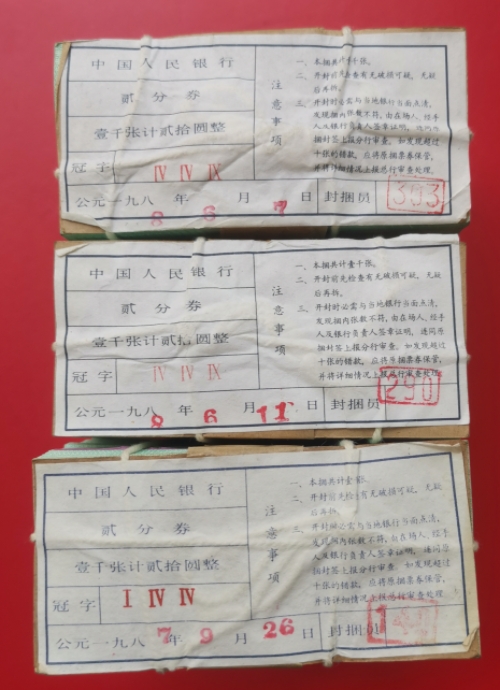 中国人民银行
贰分券
壹千张计贰拾圆整
冠字 Ⅳ Ⅳ Ⅸ
公元一九八8年6月7日 封捆员 353
注意事项
一、本捆共计千张。
二、开封前先查有无破损可疑，无疑后再拆。
三、开封时必需与当地银行当面点清，
发现捆内张数不符，由在场人、经手
人及银行负责人签章证明，连同原
捆封签上报分行审查。如发现超过
十张的错款，应将原捆票券保管，
并将详细情况上报总行审查处理。
中国人民银行
贰分券
壹千张计贰拾圆整
冠字 Ⅳ Ⅳ Ⅸ
公元一九八8年6月11日 封捆员 290
注意事项
一、本捆共计壹千张。
二、开封前先检查有无破损可疑，无疑
后再拆。
三、开封时必需与当地银行当面点清，
发现捆内张数不符，由在场人、经手
人及银行负责人签章证明，连同原
捆封签上报分行审查。如发现超过
十张的错款，应将原捆票券保管，
并将详细情况上报总行审查处理
中国人民银行
贰分券
壹千张计贰拾圆整
冠字 Ⅰ Ⅳ Ⅳ
公元一九八7年9月26日 封捆员
注意事项
一、本捆共计壹张。
二、开封前先检查有无破损可疑，无疑
后再拆。
三、开封时必需与当地银行当面点清，
发现捆内张数不符，由在场人、经手
人及银行负责人签章证明，连同原
捆封签上报分行审查。如发现超过
十张的错款，应将原捆票券保管，
并将详细情况上报总行审查处理。